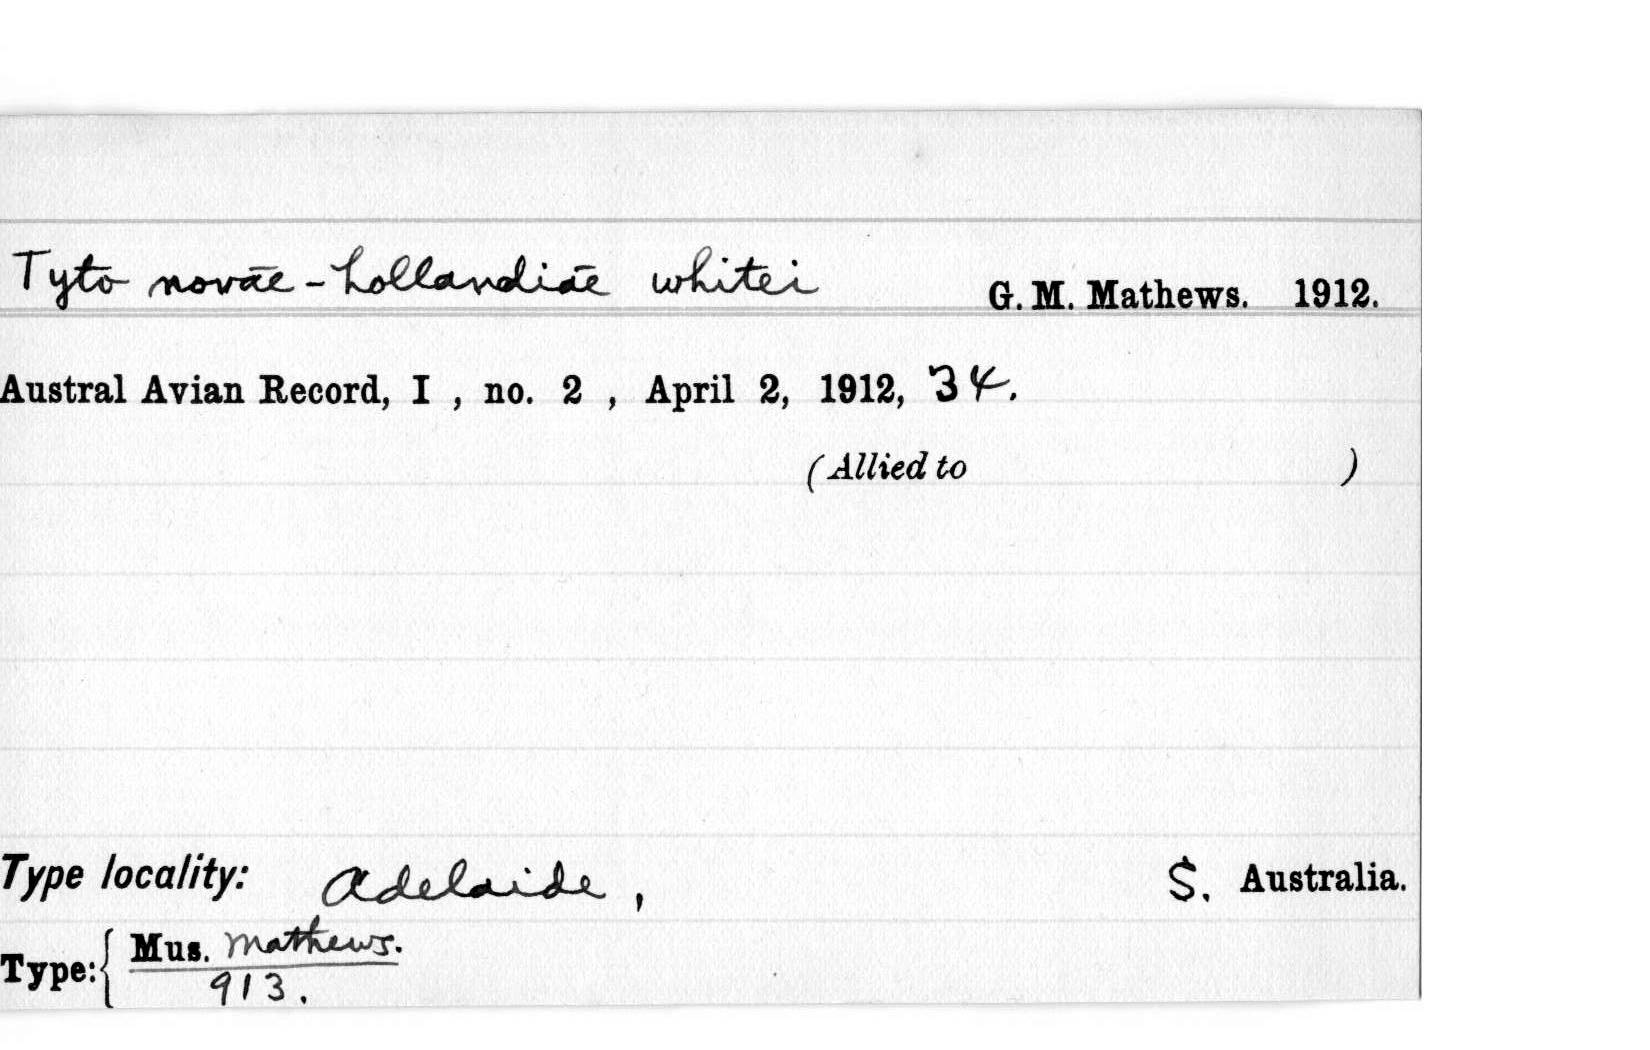 Tyto novae-hollandiae whitei G. M. Mathews. 1912.
Austral Avian Record, I , no. 2 , April 2, 1912, 34.
(Allied to )
Type locality: Adelaide, S. Australia.
Type: { Mus. Mathews.
913.